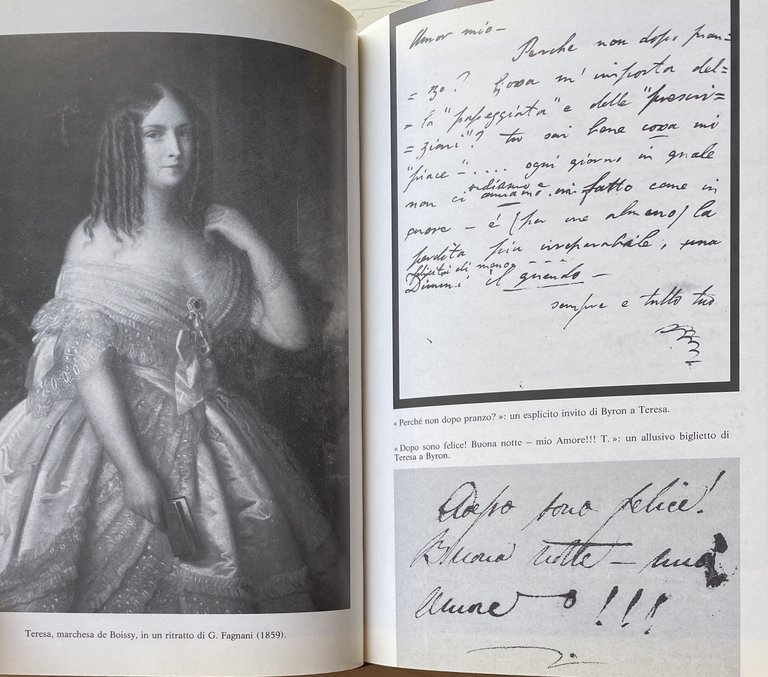 Teresa, marchesa de Boissy, in un ritratto di G. Fagnani (1859).
Amor mio –
Perche non dopo pran=
= zo? Cosa m'importa del=
= la "passeggiata" e delle "prescri=
= zioni"? tu sai bene cosa mi
"piace" – .... ogni giorno in quale
non ci vediamo e amiamo in fatto come in
cuore – é (per me almeno) la
perdita piu irreparabile, una
felicità di meno – – – –
Dimmi il quando –
sempre e tutto tuo
«Perché non dopo pranzo?»: un esplicito invito di Byron a Teresa.
«Dopo sono felice! Buona notte – mio Amore!!! T.»: un allusivo biglietto di
Teresa a Byron.
Dopo sono felice!
Buona notte – mio
Amore !!!